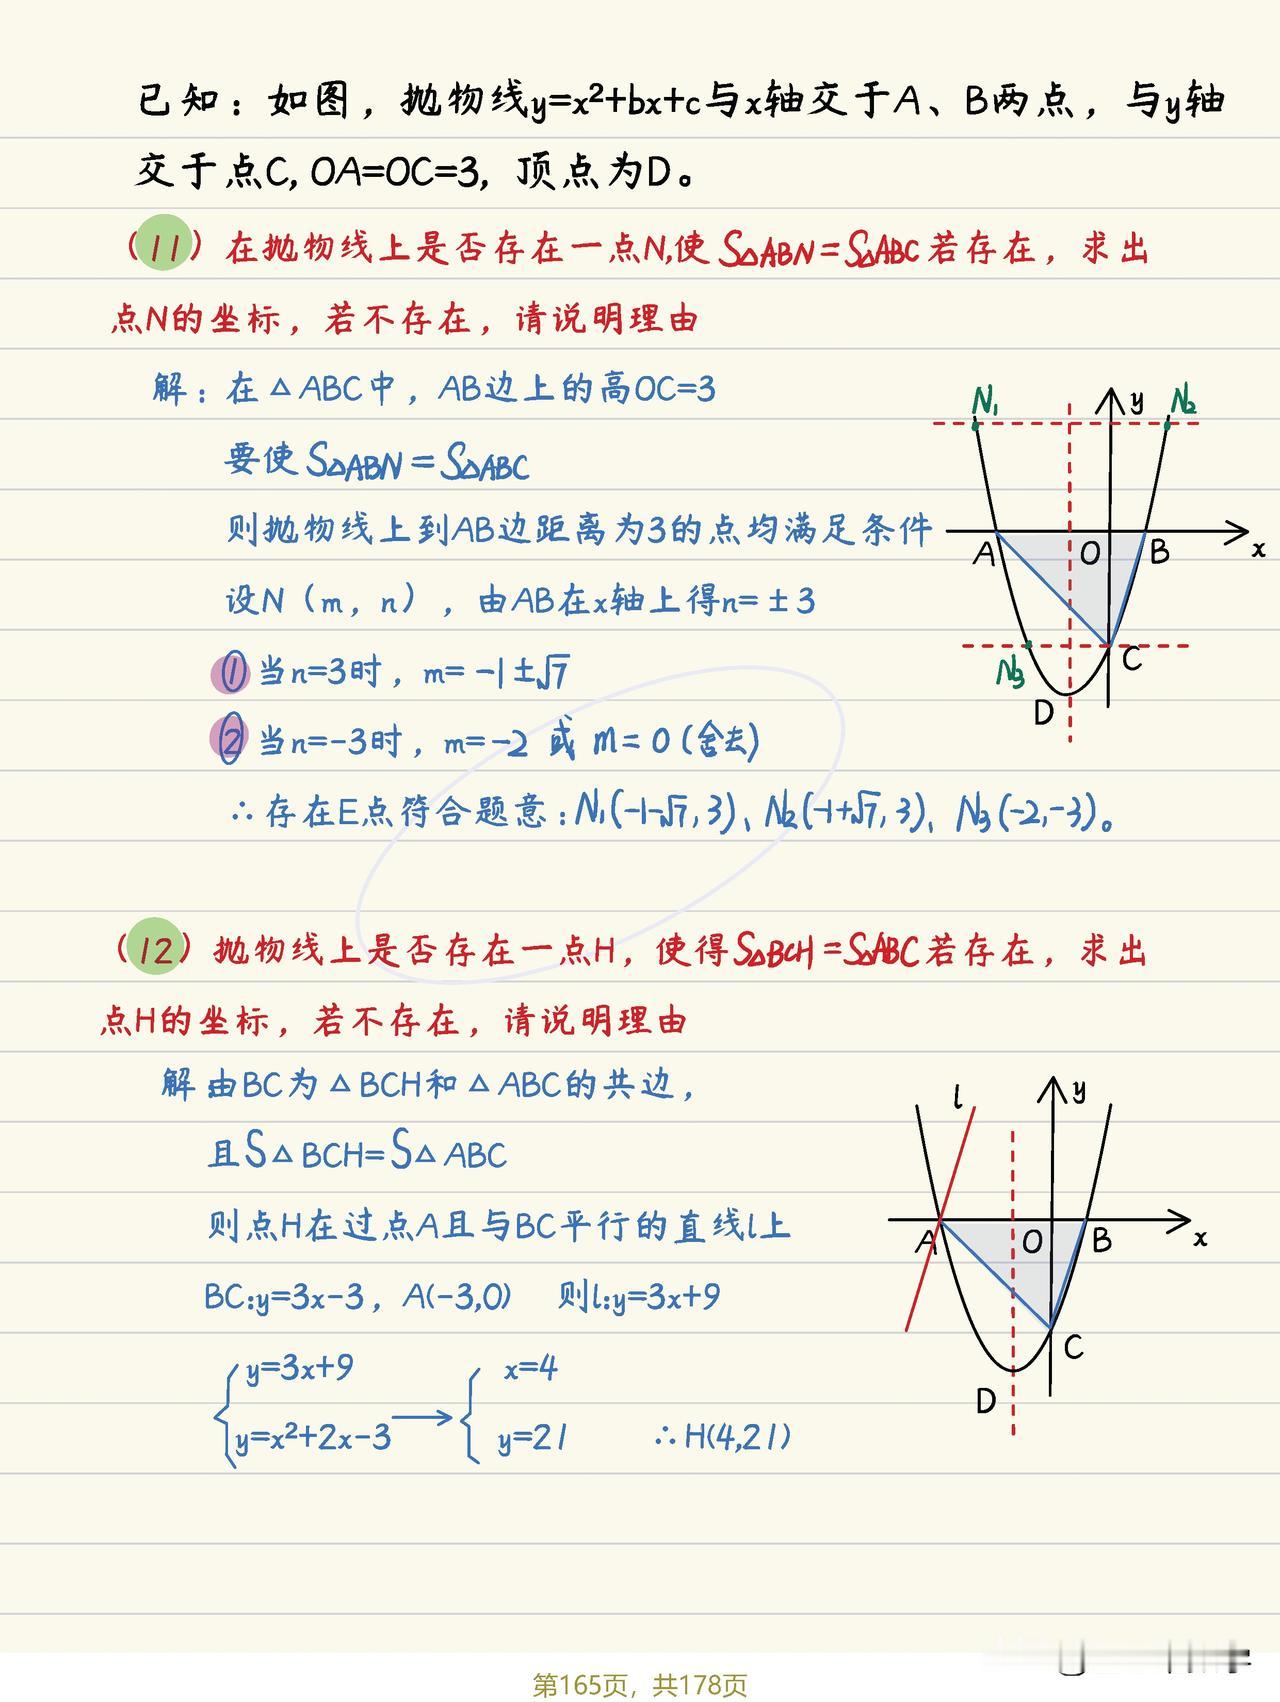 已知：如图，抛物线y=x²+bx+c与x轴交于A、B两点，与y轴
交于点C, OA=OC=3, 顶点为D。
（11）在抛物线上是否存在一点N,使S△ABN=S△ABC若存在，求出
点N的坐标，若不存在，请说明理由
解：在△ABC中，AB边上的高OC=3
要使S△ABN=S△ABC
则抛物线上到AB边距离为3的点均满足条件
设N（m，n），由AB在x轴上得n=±3
①当n=3时，m=-1±√7
②当n=-3时，m=-2 或 m=0(舍去)
∴存在E点符合题意：N₁(-1-√7,3)、N₂(-1+√7,3)、N₃(-2,-3)。
N₁
y
N₂
A
O
B
x
N₃
C
D
（12）抛物线上是否存在一点H，使得S△BCH=S△ABC若存在，求出
点H的坐标，若不存在，请说明理由
解由BC为△BCH和△ABC的共边，
且S△BCH=S△ABC
则点H在过点A且与BC平行的直线l上
BC:y=3x-3，A(-3,0) 则l:y=3x+9
y=3x+9 x=4
y=x²+2x-3 → y=21 ∴H(4,21)
l
y
A
O
B
x
C
D
第165页，共178页